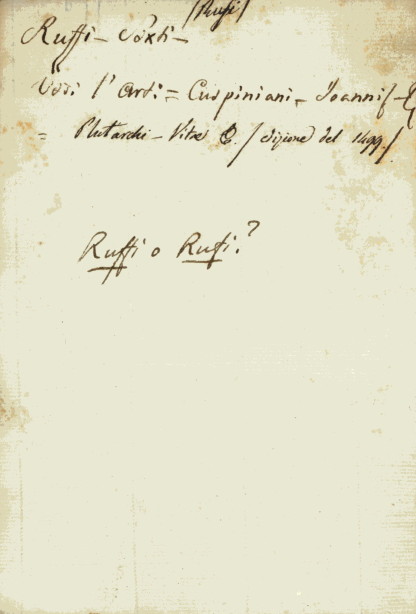 /Rufi/
Ruffi - Sexti -
Vedi l' Arti: = Cuspiniani - Joannis -
= Plutarchi - Vitae &. / edizione del 1499. /
Ruffi o Rufi. ?